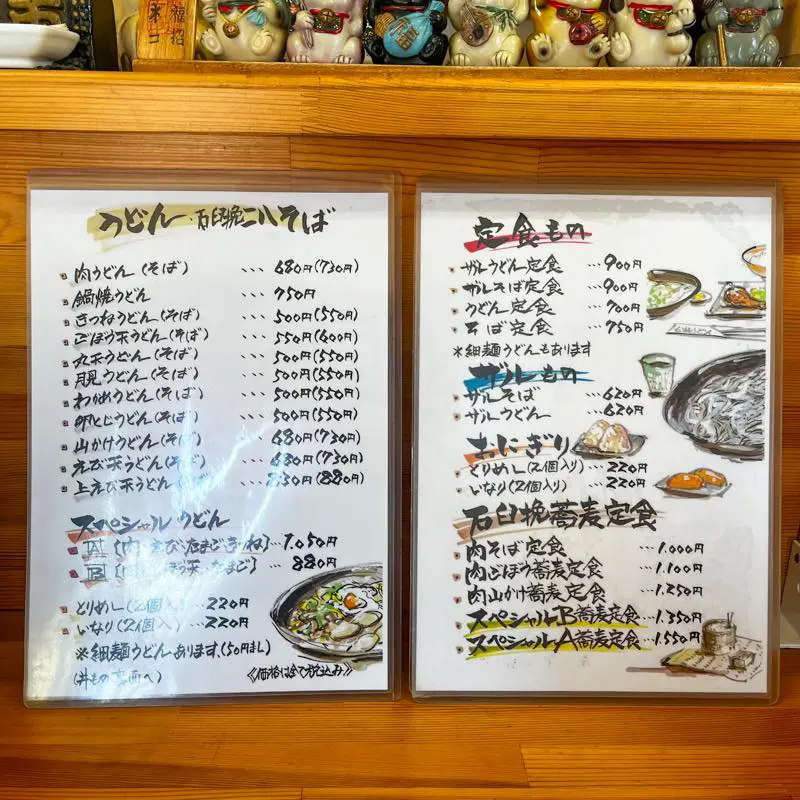 福招
うどん・石臼挽二八そば
肉うどん(そば) ･･･ 680円(730円)
鍋焼うどん ･･･ 750円
きつねうどん(そば) ･･･ 500円(550円)
ごぼう天うどん(そば) ･･･ 550円(600円)
丸天うどん(そば) ･･･ 500円(550円)
月見うどん(そば) ･･･ 500円(550円)
わかめうどん(そば) ･･･ 500円(550円)
卵とじうどん(そば) ･･･ 500円(550円)
山かけうどん(そば) ･･･ 680円(730円)
えび天うどん(そば) ･･･ 680円(730円)
上えび天うどん(そば) ･･･ 830円(880円)
スペシャルうどん
A [肉・えび・たまご・きつね]･･･1,050円
B [肉・ごぼう天・たまご]･･･ 880円
とりめし(2個入)･･･220円
いなり(2個入)･･･220円
※細麺うどんあります。(50円まし)
(丼もの裏面へ)
《価格は全て税込み》
定食もの
ザルうどん定食 ･･･900円
ザルそば定食 ･･･900円
うどん定食 ･･･700円
そば定食 ･･･750円
※細麺うどんもあります
ザルもの
ザルそば ･･･620円
ザルうどん ･･･620円
おにぎり
とりめし(2個入り)･･･220円
いなり(2個入) ･･･220円
石臼挽蕎麦定食
肉そば定食 ･･･1,000円
肉ごぼう蕎麦定食 ･･･1,100円
肉山かけ蕎麦定食 ･･･1,250円
スペシャルB蕎麦定食･･･1,350円
スペシャルA蕎麦定食･･･1,550円